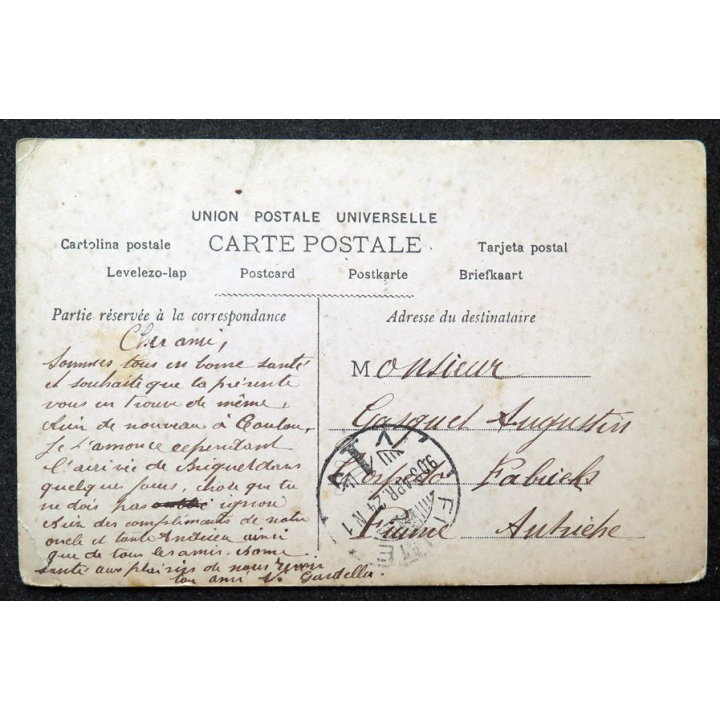 UNION POSTALE UNIVERSELLE
Cartolina postale CARTE POSTALE Tarjeta postal
Levelezo-lap Postcard Postkarte Briefkaart
Partie réservée à la correspondance
Adresse du destinataire
Cher ami,
Sommes tous en bonne santé
et souhaite que la présente
vous en trouve de même,
Rien de nouveau à Toulon,
Je t'annonce cependant
l'arrivée de Buguet dans
quelques jours, chose que tu
ne dois pas ignorer
Bien des compliments de notre
oncle et tante Andrieu ainsi
que de tous les amis. Bonne
santé aux plaisirs de nous revoir
ton ami
Monsieur
Casquet Augustin
Torpedo Fabrick
Fiume Autriche
FIUME
905 APR. 24 N 1